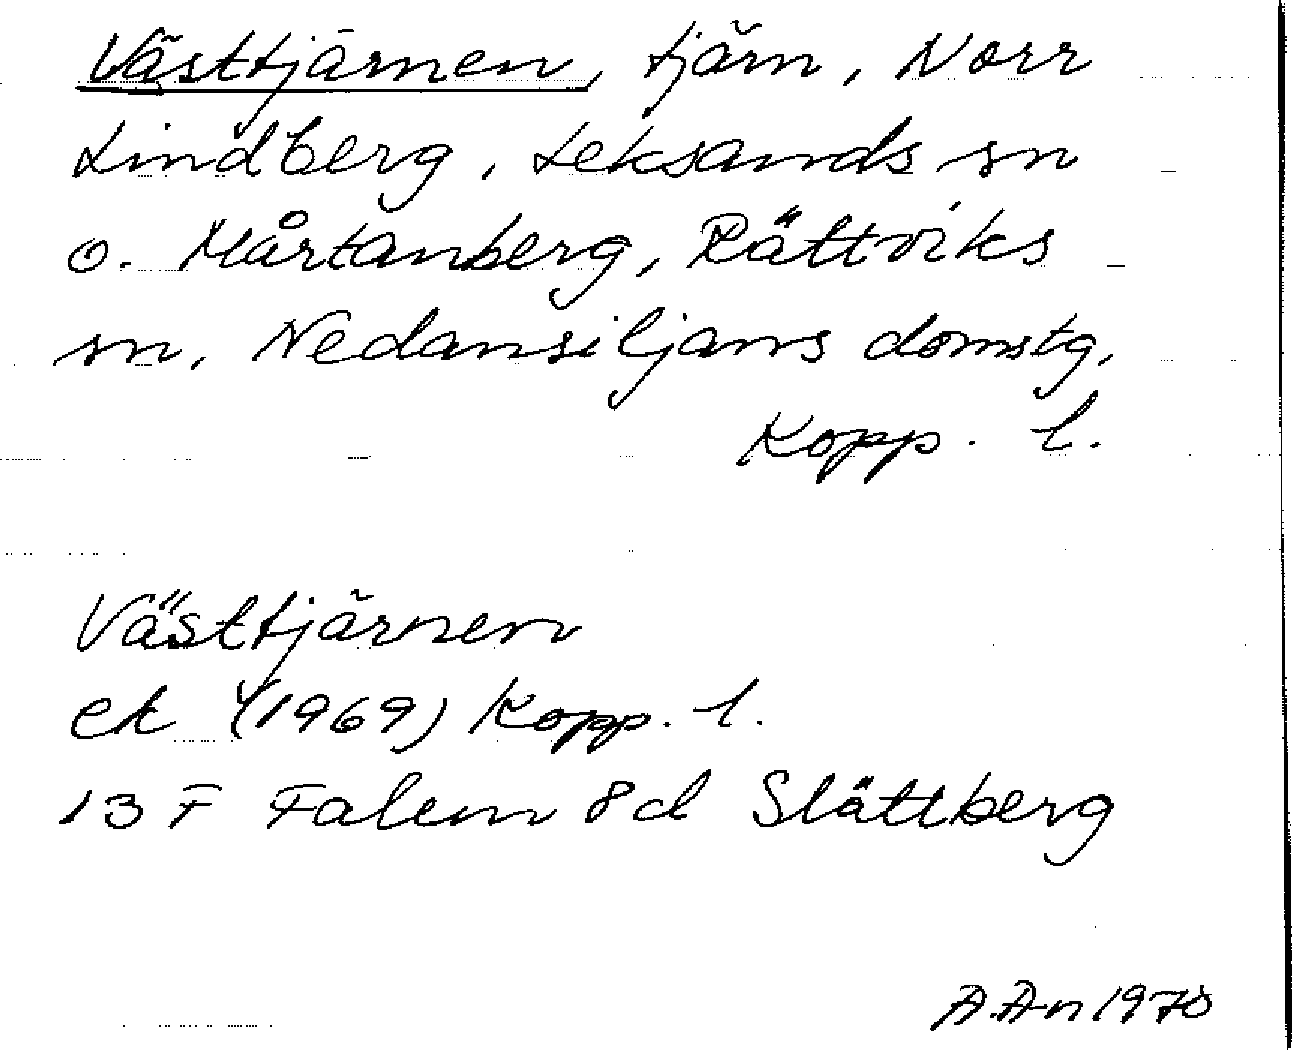 Västtjärnen, tjärn, Norr
Lindberg, Leksands sn
o. Mårtanberg, Rättviks
sn, Nedansiljans domstg,
Kopp. l.
Västtjärnen
ek (1969) Kopp. l.
13 F Falun 8d Slättberg
A.An 1970